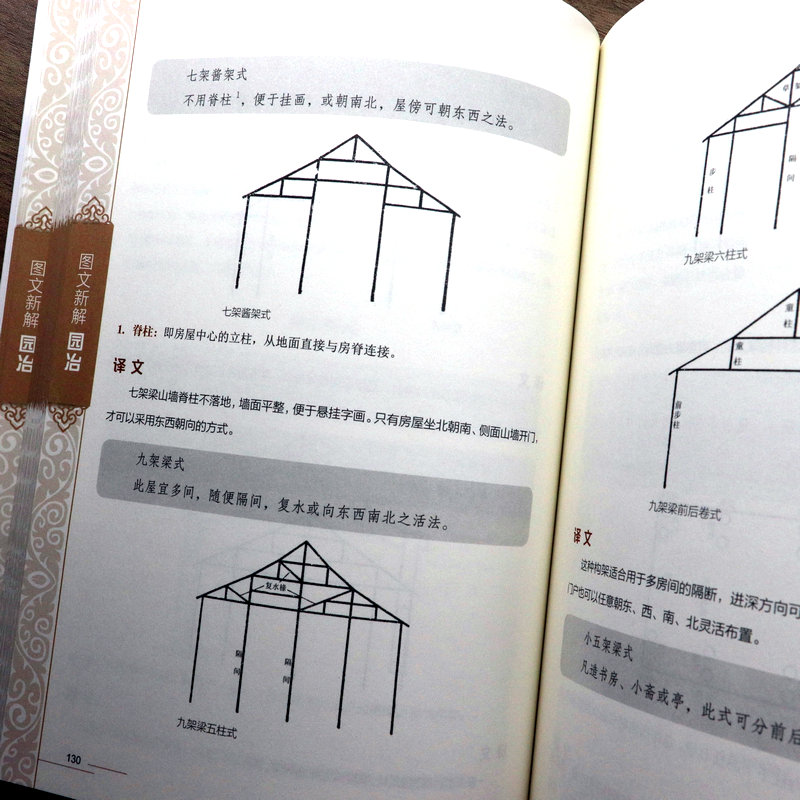 图文新解
园冶
图文新解
园冶
七架酱架式
不用脊柱1，便于挂画，或朝南北，屋傍可朝东西之法。
七架酱架式
1. 脊柱：即房屋中心的立柱，从地面直接与房脊连接。
译文
七架梁山墙脊柱不落地，墙面平整，便于悬挂字画。只有房屋坐北朝南、侧面山墙开门，
才可以采用东西朝向的方式。
九架梁式
此屋宜多间，随便隔间，复水或向东西南北之活法。
复水椽
隔间
隔间
九架梁五柱式
130
草架
步柱
隔间
九架梁六柱式
童柱
童柱
前步柱
九架梁前后卷式
译文
这种构架适合用于多房间的隔断，进深方向可
门户也可以任意朝东、西、南、北灵活布置。
小五架梁式
凡造书房、小斋或亭，此式可分前后